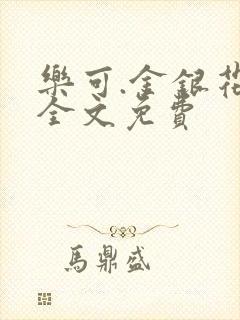 樂可.金銀花
全文免費
馬鼎盛